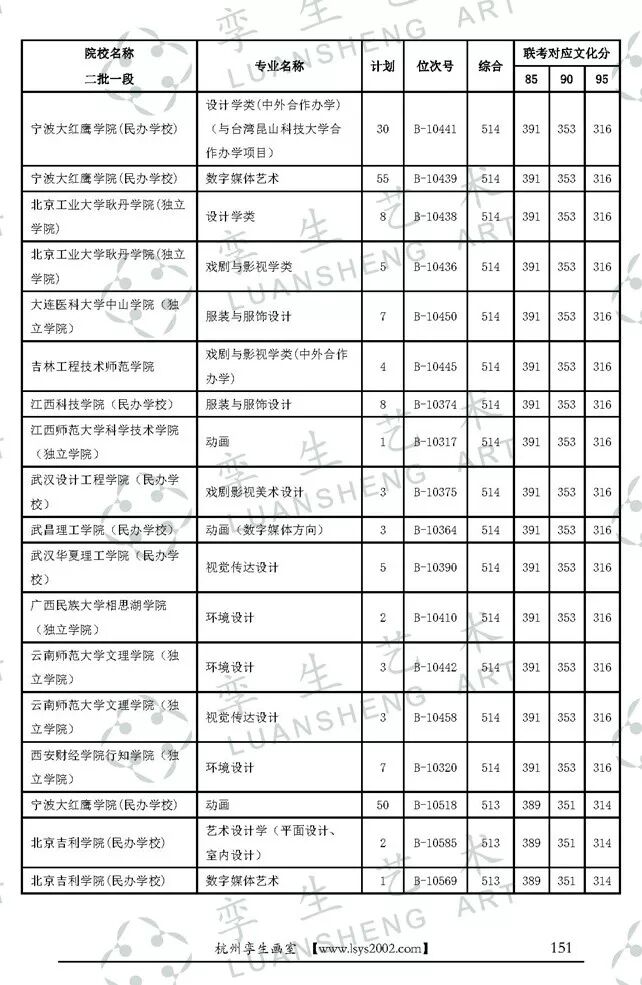 孪生艺术
LUANSHENG ART
院校名称
二批一段
专业名称
计划
位次号
综合
联考对应文化分
85 90 95
宁波大红鹰学院(民办学校)
设计学类(中外合作办学)
（与台湾昆山科技大学合
作办学项目）
30 B-10441 514 391 353 316
宁波大红鹰学院(民办学校) 数字媒体艺术 55 B-10439 514 391 353 316
北京工业大学耿丹学院(独立
学院)
设计学类 8 B-10438 514 391 353 316
北京工业大学耿丹学院(独立
学院)
戏剧与影视学类 5 B-10436 514 391 353 316
大连医科大学中山学院（独
立学院）
服装与服饰设计 7 B-10450 514 391 353 316
吉林工程技术师范学院
戏剧与影视学类(中外合作
办学)
4 B-10445 514 391 353 316
江西科技学院（民办学校） 服装与服饰设计 8 B-10374 514 391 353 316
江西师范大学科学技术学院
（独立学院）
动画 1 B-10317 514 391 353 316
武汉设计工程学院（民办学
校）
戏剧影视美术设计 3 B-10375 514 391 353 316
武昌理工学院（民办学校） 动画（数字媒体方向） 3 B-10364 514 391 353 316
武汉华夏理工学院（民办学
校）
视觉传达设计 5 B-10390 514 391 353 316
广西民族大学相思湖学院
（独立学院）
环境设计 2 B-10410 514 391 353 316
云南师范大学文理学院（独
立学院）
环境设计 3 B-10442 514 391 353 316
云南师范大学文理学院（独
立学院）
视觉传达设计 3 B-10458 514 391 353 316
西安财经学院行知学院（独
立学院）
环境设计 7 B-10320 514 391 353 316
宁波大红鹰学院(民办学校) 动画 50 B-10518 513 389 351 314
北京吉利学院(民办学校)
艺术设计学（平面设计、
室内设计）
2 B-10585 513 389 351 314
北京吉利学院(民办学校) 数字媒体艺术 1 B-10569 513 389 351 314
杭州孪生画室 【www.lsys2002.com】 151